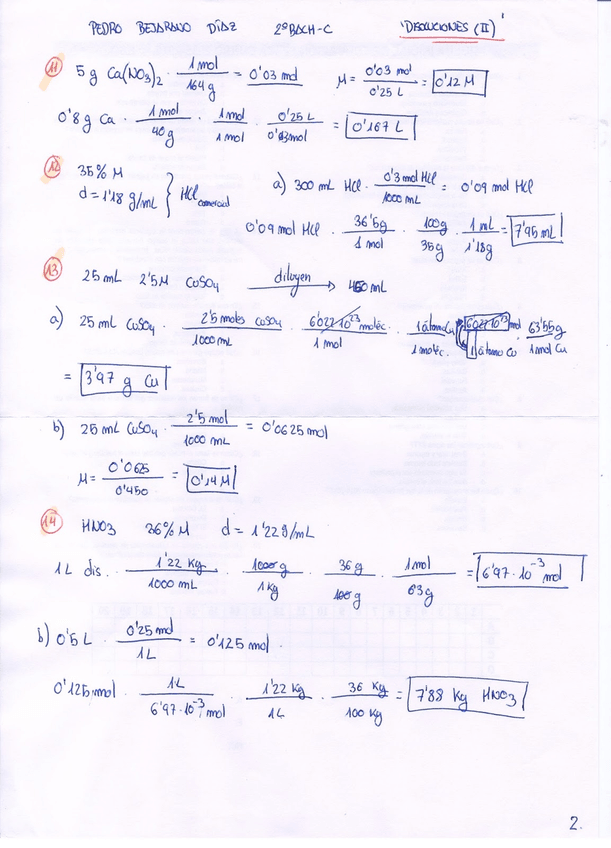 PEDRO BEJARANO DÍAZ 2º BACH-C 'DISOLUCIONES (II)'
11 5 g Ca(NO3)2 · 1 mol / 164 g = 0'03 mol M = 0'03 mol / 0'25 L = 0'12 M
0'8 g Ca · 1 mol / 40 g · 1 mol / 1 mol · 0'25 L / 0'03 mol = 0'167 L
12 35% M
d = 1'18 g/mL } HCl comercial a) 300 mL HCl · 0'3 mol HCl / 1000 mL = 0'09 mol HCl
0'09 mol HCl · 36'5 g / 1 mol · 100 g / 35 g · 1 mL / 1'18 g = 7'95 mL
13 25 mL 2'5 M CuSO4 diluyen → 450 mL
a) 25 mL CuSO4 · 2'5 moles CuSO4 / 1000 mL · 6'022·10^23 moléc. / 1 mol · 1 átomo Cu / 1 moléc. · 6'022·10^23 mol / 1 átomo Cu · 63'55 g / 1 mol Cu
= 3'97 g Cu
b) 25 mL CuSO4 · 2'5 mol / 1000 mL = 0'0625 mol
M = 0'0625 / 0'450 = 0'14 M
14 HNO3 36% M d = 1'22 g/mL
1 L dis. · 1'22 Kg / 1000 mL · 1000 g / 1 Kg · 36 g / 100 g · 1 mol / 63 g = 6'97·10^-3 mol
b) 0'5 L · 0'25 mol / 1 L = 0'125 mol.
0'125 mol · 1 L / 6'97·10^-3 mol · 1'22 Kg / 1 L · 36 Kg / 100 Kg = 7'88 Kg HNO3
2.